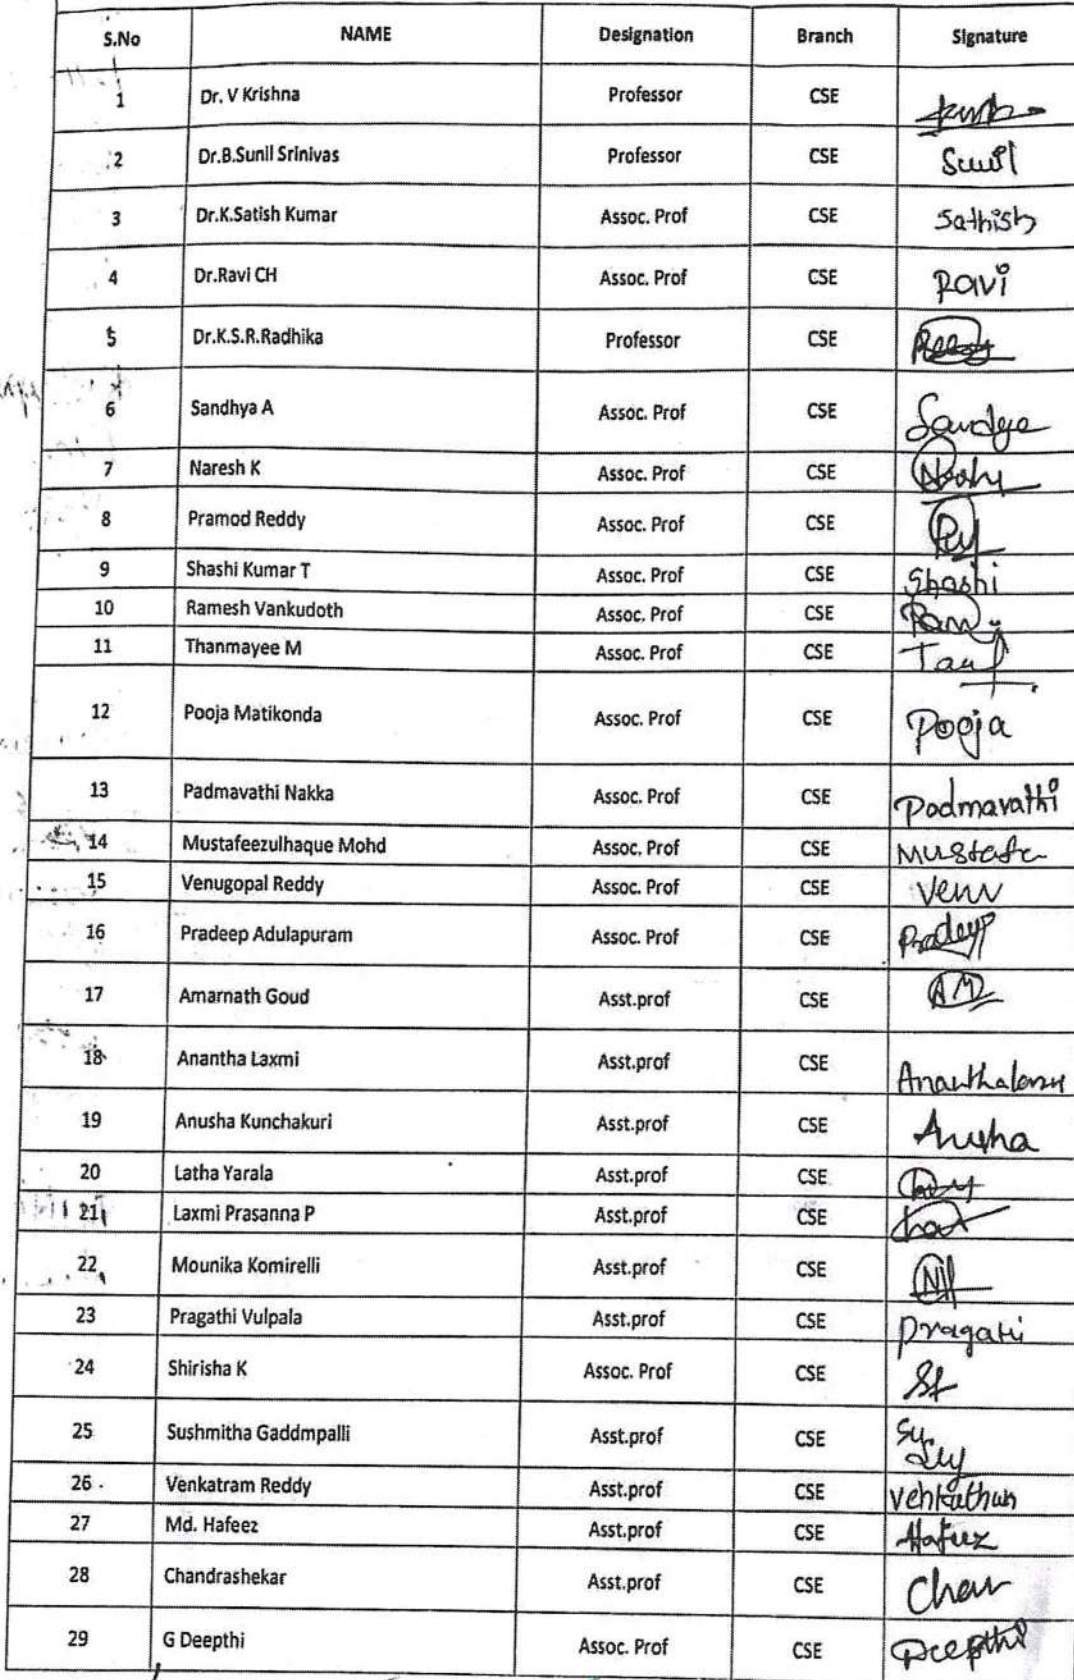 S.No NAME Designation Branch Signature
1 Dr. V Krishna Professor CSE
2 Dr.B.Sunil Srinivas Professor CSE Sunil
3 Dr.K.Satish Kumar Assoc. Prof CSE Sathish
4 Dr.Ravi CH Assoc. Prof CSE Ravi
5 Dr.K.S.R.Radhika Professor CSE
6 Sandhya A Assoc. Prof CSE
7 Naresh K Assoc. Prof CSE
8 Pramod Reddy Assoc. Prof CSE
9 Shashi Kumar T Assoc. Prof CSE Shashi
10 Ramesh Vankudoth Assoc. Prof CSE
11 Thanmayee M Assoc. Prof CSE
12 Pooja Matikonda Assoc. Prof CSE Pooja
13 Padmavathi Nakka Assoc. Prof CSE Padmavathi
14 Mustafeezulhaque Mohd Assoc. Prof CSE Mustafa
15 Venugopal Reddy Assoc. Prof CSE Venu
16 Pradeep Adulapuram Assoc. Prof CSE Pradeep
17 Amarnath Goud Asst.prof CSE
18 Anantha Laxmi Asst.prof CSE
19 Anusha Kunchakuri Asst.prof CSE Anusha
20 Latha Yarala Asst.prof CSE
21 Laxmi Prasanna P Asst.prof CSE
22 Mounika Komirelli Asst.prof CSE
23 Pragathi Vulpala Asst.prof CSE Pragati
24 Shirisha K Assoc. Prof CSE
25 Sushmitha Gaddmpalli Asst.prof CSE
26 Venkatram Reddy Asst.prof CSE
27 Md. Hafeez Asst.prof CSE Hafeez
28 Chandrashekar Asst.prof CSE
29 G Deepthi Assoc. Prof CSE Deepthi